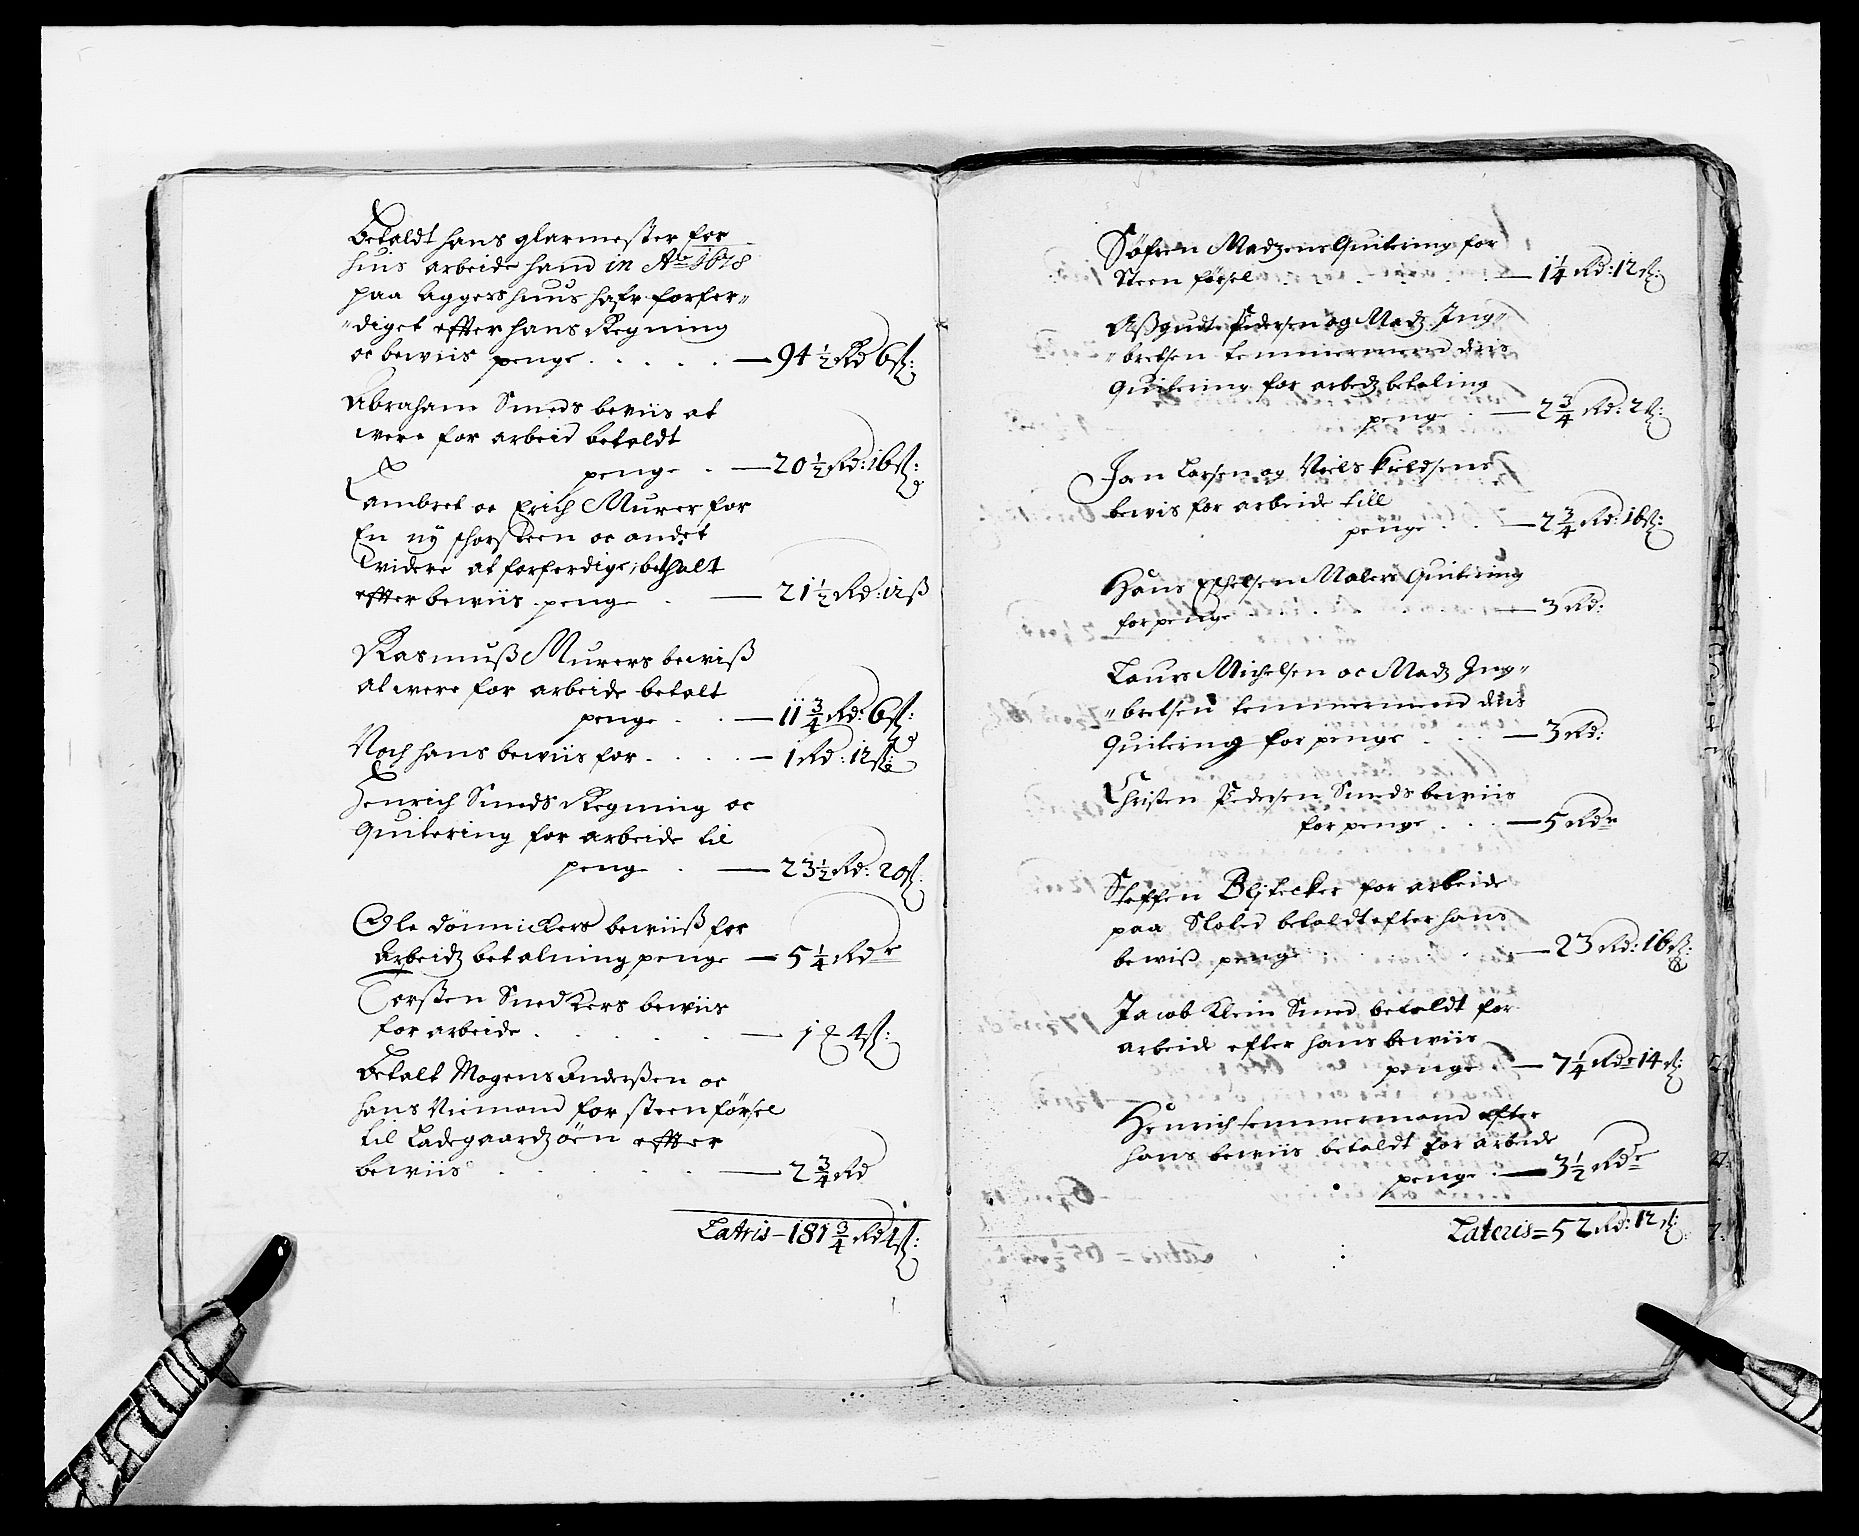 Betaldt hans glarmester for
huis arbeide hand in Ao 1678
paa Aggershuus hafr forfer„
„diget effter hans Regning
oc beviis penge . . . . . — 94 ½ Rd 6 ß:
Abraham Smeds beviis at
were for arbeid betaldt
penge . — 20 ½ Rd: 16 ß:
Lambret oc Erich Murer for
En ny schorsteen oc andet
videre at forferdige, bethalt
effter beviis penge . — 21 ½ Rd: 12 ß
Rasmuß Murers beviß
at were for arbeide betalt
penge . . — 11 ¾ Rd: 6 ß:
Noch hans beviis for . . . . — 1 Rd: 12 ß:
Henrich Smeds Regning oc
Quitering for arbeide til
penge . — 23 ½ Rd: 20 ß
Ole dönnickers beviiß for
Arbeidz betalning penge — 5 ¼ Rdr
Torsten Snedkers beviis
for arbeide . . . . . — 1 4 ß:
Betalt Mogens Anderßen oc
hans Niemand for steen försel
til Ladegaardzöen effter
beviis . . . . . — 2 ¾ Rd
Latris – 181 ¾ Rd 4 ß:
Söfren Madzens Quitering for
Steen försel . . . . . — 14 Rd: 12 ß:
Aßgudt Pedersen og Madz Ing„
„bretsen temmermend deris
Quitering for arbedz betaling
penge . — 2 ¾ Rd: 2 ß:
Jan Larsen og Niels Kieldsens
bewis for arbeide till
penge . . — 2 ¾ Rd: 16 ß:
Hans Eschelsen Malers Quitering
for penge . . . — 3 Rd:
Laurs Michelsen oc Madz Ing„
„bretsen temmermend deris
Quitering for penge . . . — 3 Rd:
Christen Pedersen Smeds beviis
for penge . . . — 5 Rdr
Steffen Blytecker for arbeide
paa Sloted betaldt efter hans
beviß penge . . . — 23 Rd: 16 ß:
Jacob Klein Smed betaldt for
arbeide efter hans beviis
penge — 7 ¼ Rdr 14 ß:
Henrich temmermand efter
hans beviis betaldt for arbeide
penge . — 3 ½ Rdr
Lateris = 52 Rd: 12 ß: